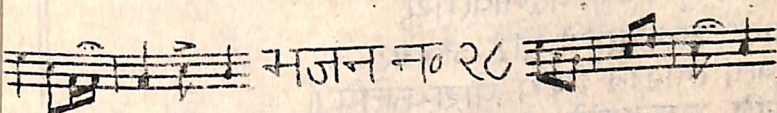 भजन न० २८